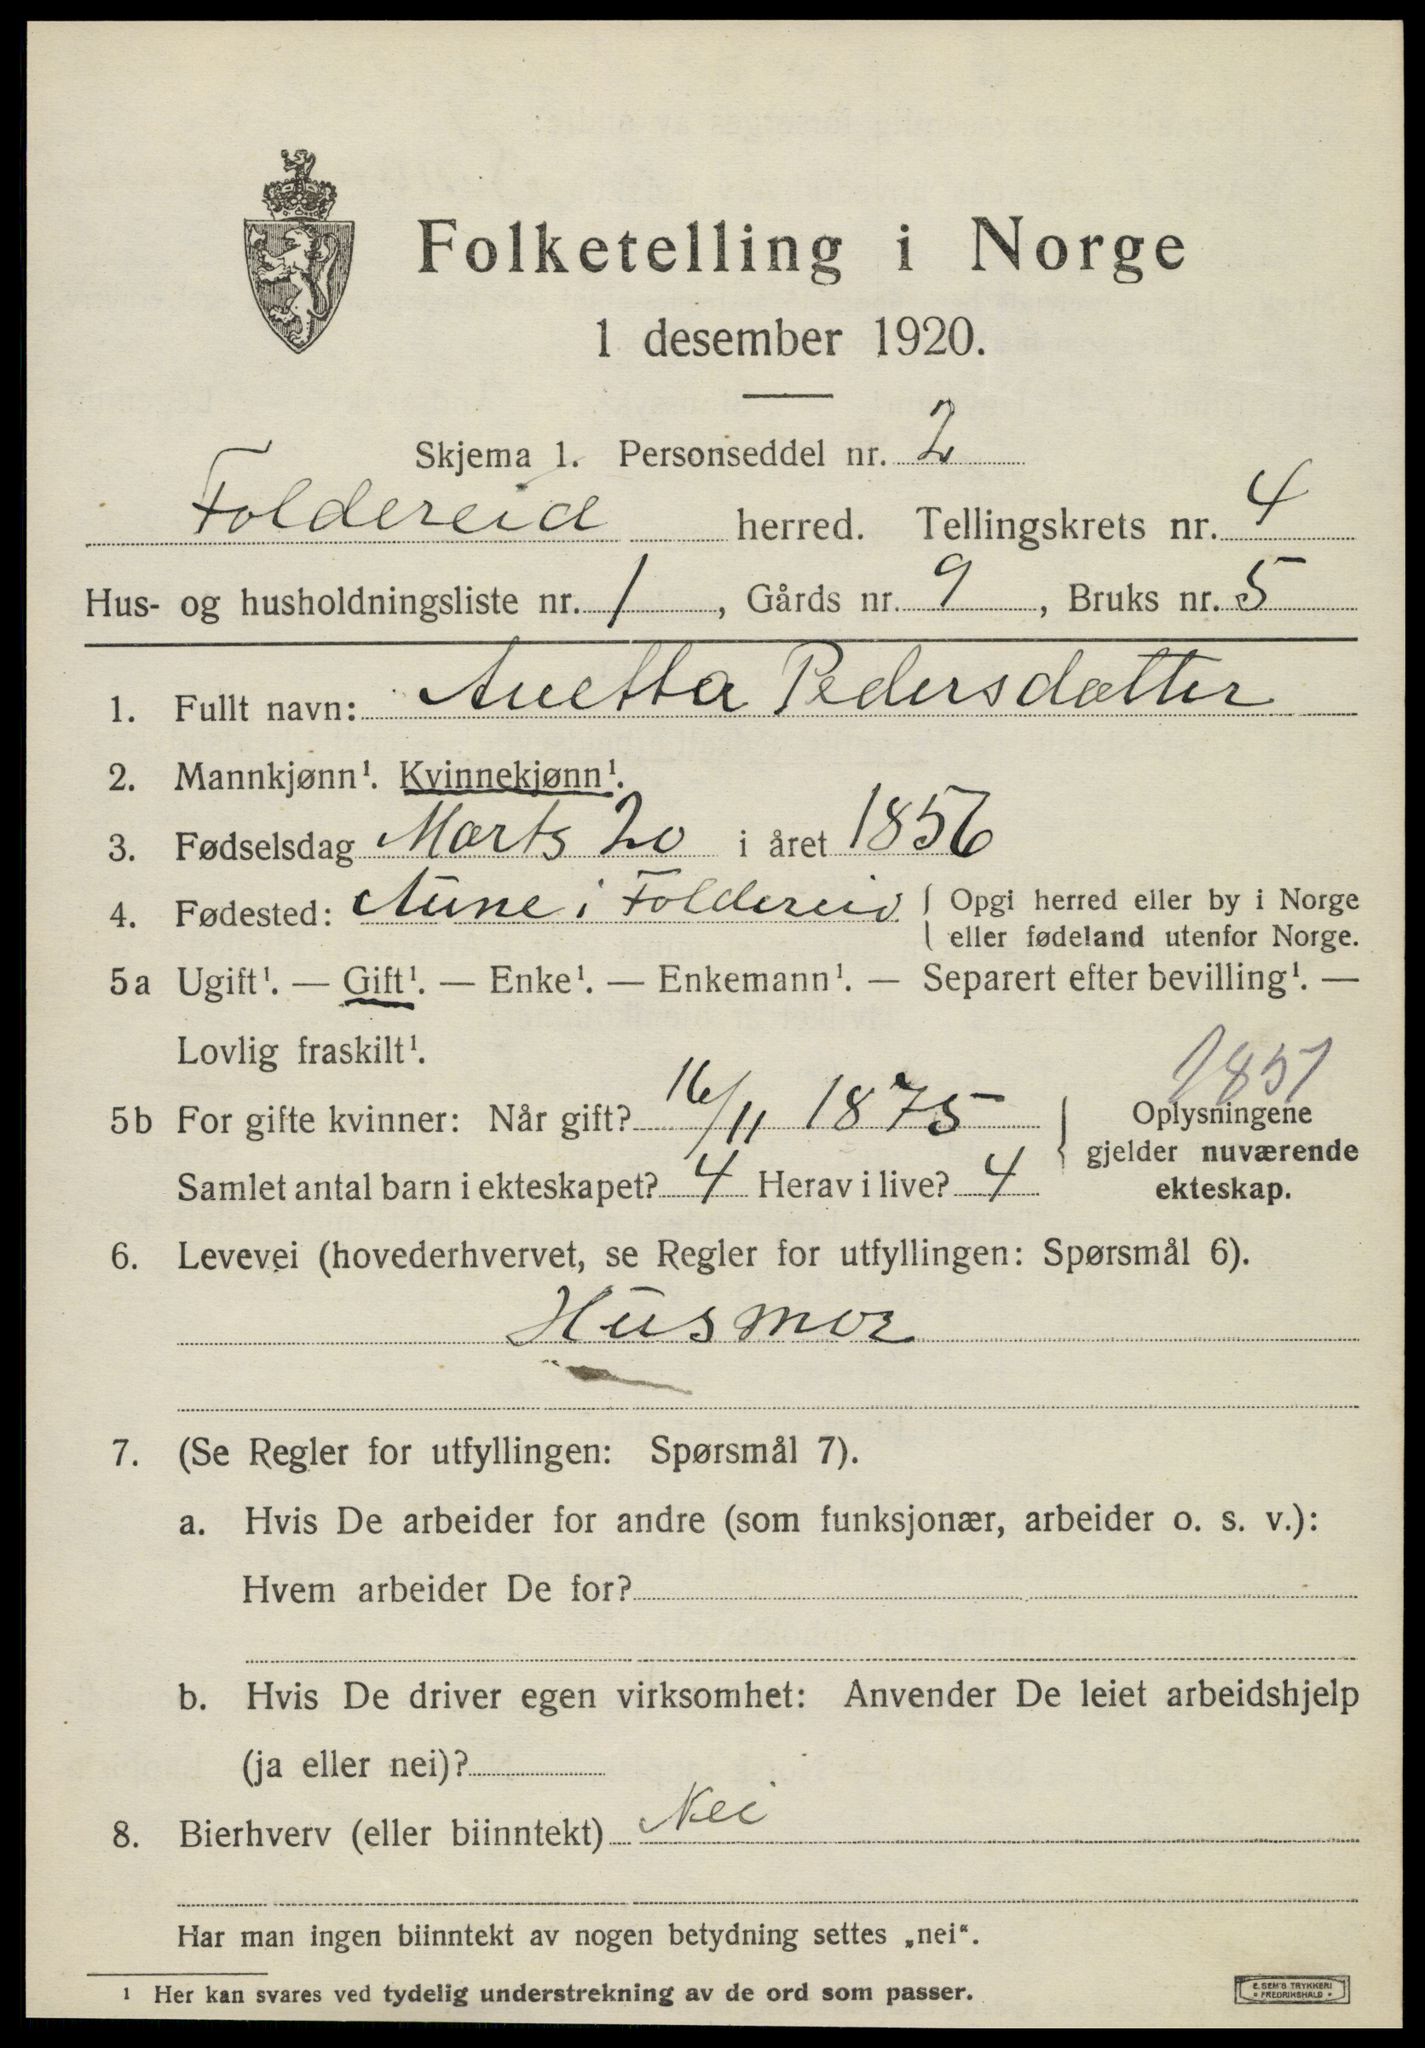 Folketelling i Norge
1 desember 1920.
Skjema 1. Personseddel nr. 2
Foldereid herred. Tellingskrets nr. 4
Hus- og husholdningsliste nr. 1, Gårds nr. 9, Bruks nr. 5
1. Fullt navn: Anetta Pedersdatter
2. Mannkjønn¹. Kvinnekjønn¹.
3. Fødselsdag Marts 20 i året 1856
4. Fødested: Aune i Foldereid { Opgi herred eller by i Norge
eller fødeland utenfor Norge.
5a Ugift¹. — Gift¹. — Enke¹. — Enkemann¹. — Separert efter bevilling¹. —
Lovlig fraskilt¹.
1851
5b For gifte kvinner: Når gift? 16/11 1875 { Oplysningene
gjelder nuværende
Samlet antal barn i ekteskapet? 4 Herav i live? 4 ekteskap.
6. Levevei (hovederhvervet, se Regler for utfyllingen: Spørsmål 6).
Husmor
7. (Se Regler for utfyllingen: Spørsmål 7).
a. Hvis De arbeider for andre (som funksjonær, arbeider o. s. v.):
Hvem arbeider De for?
b. Hvis De driver egen virksomhet: Anvender De leiet arbeidshjelp
(ja eller nei)?
8. Bierhverv (eller biinntekt) Nei
Har man ingen biinntekt av nogen betydning settes „nei“.
¹ Her kan svares ved tydelig understrekning av de ord som passer.
E. SEM'S TRYKKERI
FREDRIKSHALD